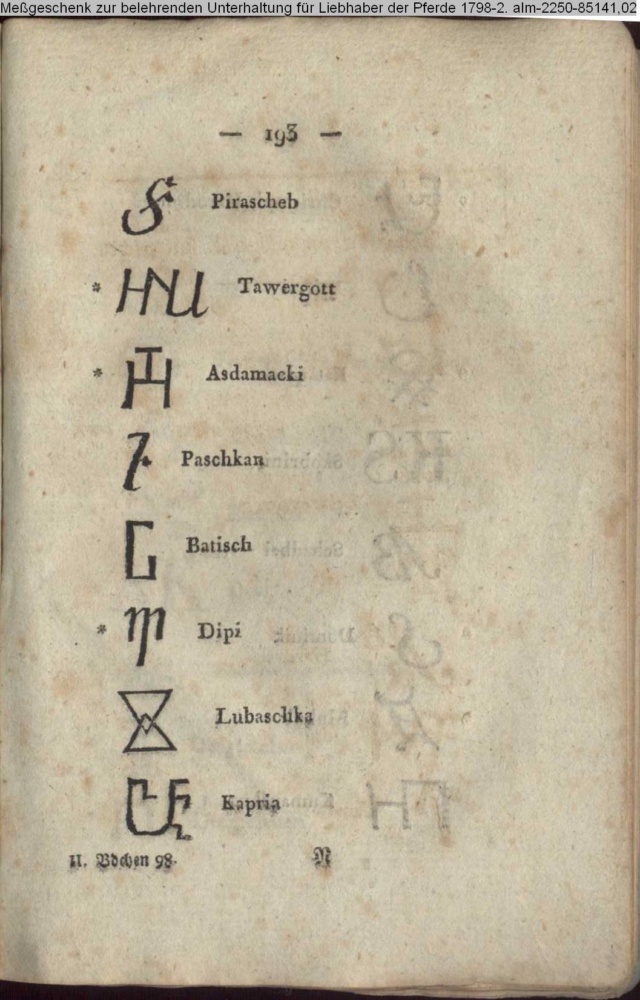 Meßgeschenk zur belehrenden Unterhaltung für Liebhaber der Pferde 1798-2. alm-2250-85141,02
— 193 —
Pirascheb
* HNU Tawergott
* Asdamacki
Paschkan
Batisch
* Dipi
Lubaschka
Kapria
II. Bdchen 98. N